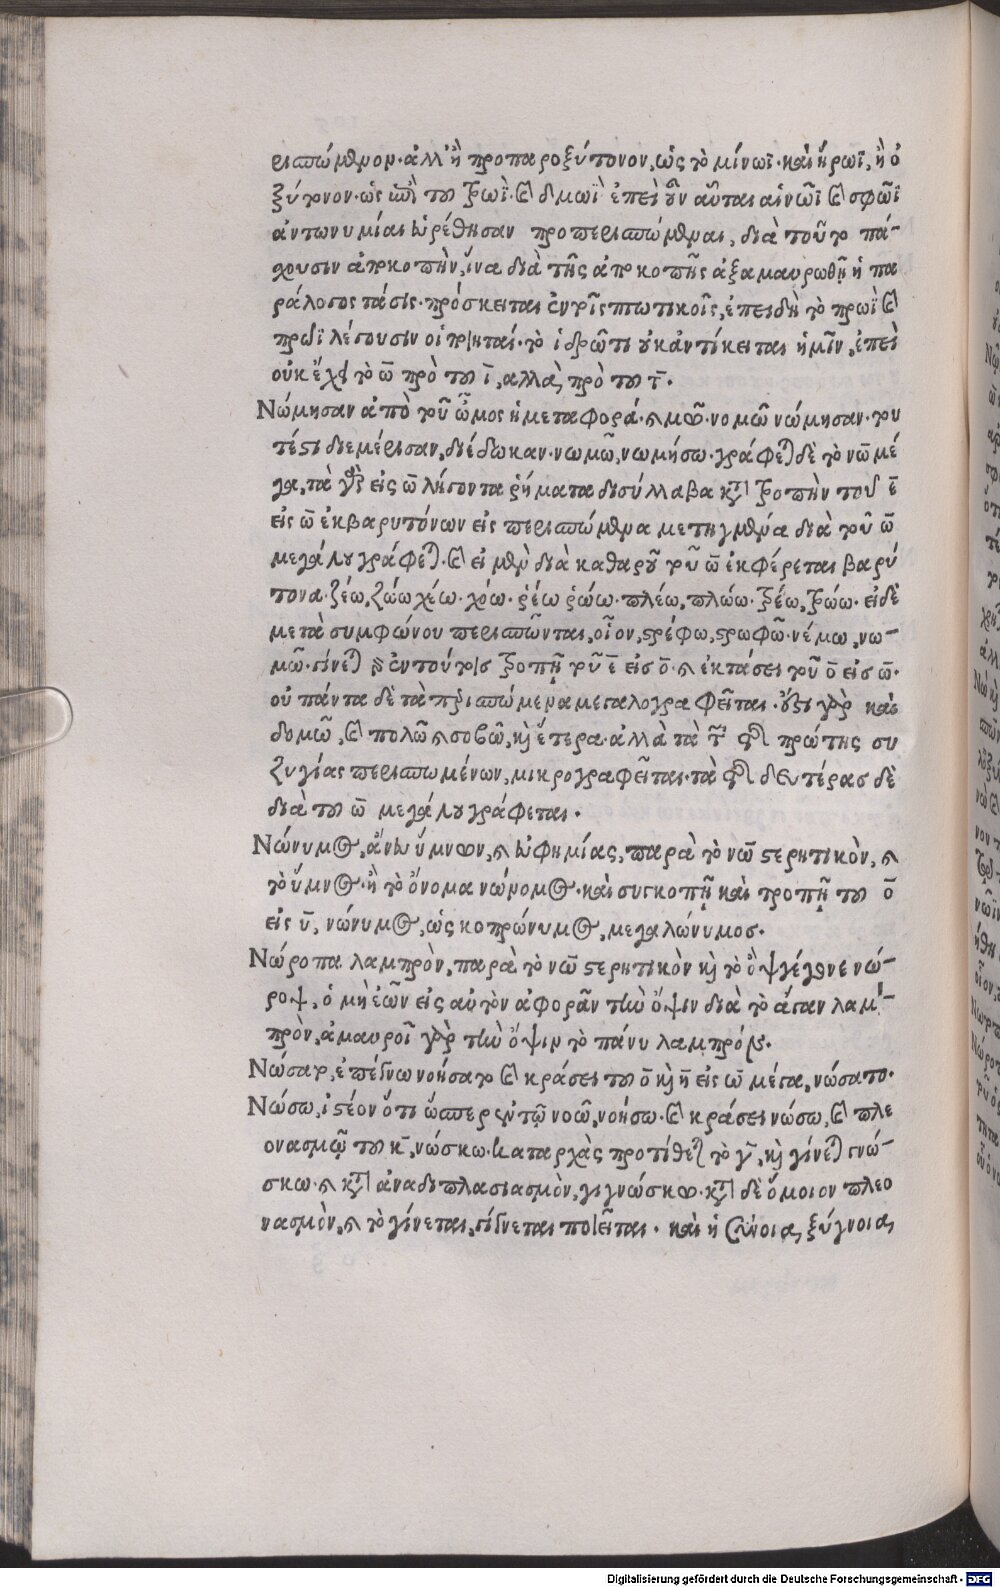 ρισπώμενον. ἀλλ' ἢ προπαροξύτονον, ὡς τὸ μίνωϊ. καὶ ἥρωϊ, ἢ ὀ
ξύτονον. ὡς ἐπὶ τοῦ τρωῒ. καὶ δμωῒ ἐπεὶ οὖν αὗται αἱ νῶϊ καὶ σφῶϊ
ἀντωνυμίαι εὑρέθησαν προπερισπώμεναι, διὰ τοῦτο πά-
χουσιν ἀποκοπὴν, ἵνα διὰ τῆς ἀποκοπῆς ἀξαμαυρωθῇ ἡ πα
ράλογος τάσις. πρόσκειται ἐν τοῖς πτωτικοῖς, ἐπειδὴ τὸ πρωῒ καὶ
πρώϊ λέγουσιν οἱ ποιηταί. τὸ ἱδρῶτι οὐκ ἀντίκειται ἡμῖν, ἐπεὶ
οὐκ ἔχει τὸ ω̄ πρὸ τοῦ ῑ, αλλὰ πρὸ τοῦ τ̄.
Νώμησαν ἀπὸ τοῦ ὦμος ἡ μεταφορά. καὶ νομῶ νώμησαν. του
τέστι διεμέρισαν, διέδωκαν. νωμῶ, νωμήσω. γράφεται δὲ τὸ νῶ μέ
γα, τὰ γὰρ εἰς ω̄ λήγοντα ῥήματα δισύλλαβα κατὰ τροπὴν τοῦ ε̄
εἰς ω̄ ἐκ βαρυτόνων εἰς περισπώμενα μετηγμένα διὰ τοῦ ω̄
μεγάλου γράφεται. καὶ εἰ μὲν διὰ καθαροῦ τοῦ ω̄ ἐκφέρεται βαρύ
τονα. ζέω, ζώω χέω. χώω. ῥέω ῥώω. πλέω, πλώω. τρέω, τρώω. εἰ δὲ
μετὰ συμφώνου περισπῶνται, οἷον, στρέφω, στρωφῶ. νέμω, νω-
μῶ. γίνεται δὲ ἐν τούτοις τροπῇ τοῦ ε̄ εἰσ ο̄. καὶ ἐκτάσει τοῦ ο̄ εἰσ ω̄.
οὐ πάντα δὲ τὰ περισπώμενα μεγαλογραφεῖται. ἔστι γὰρ καὶ
δομῶ, καὶ πολῶ καὶ σοβῶ, καὶ ἕτερα. ἀλλὰ τὰ τῆς πρώτης συ
ζυγίας περισπωμένων, μικρογραφεῖται. τὰ τῆς δευτέρας δὲ
διὰ τοῦ ω̄ μεγάλου γράφεται.
Νώνυμος, ἄνευ ὕμνων, καὶ εὐφημίας, παρὰ τὸ νῶ στερητικὸν, καὶ
τὸ ὕμνος. ἢ τὸ ὄνομα νώνομος. καὶ συγκοπῇ καὶ τροπῇ τοῦ ο̄
εἰς ῡ, νώνυμος, ὡς κοπρώνυμος, μεγαλώνυμος.
Νώροπα λαμπρὸν, παρὰ τὸ νῶ στερητικὸν καὶ τὸ ὂψ γέγονε νώ-
ροψ, ὁ μὴ ἐῶν εἰς αὐτὸν ἀφορᾶν τὴν ὄψιν διὰ τὸ ἄγαν λαμ-
πρὸν, ἀμαυροῖ γὰρ τὴν ὄψιν τὸ πάνυ λαμπρόν.
Νώσατο, ἐπέγνω νοήσατο καὶ κράσει τοῦ ο̄ καὶ η̄ εἰς ω̄ μέγα, νώσατο.
Νώσω, ἰστέον ὅτι ὥσπερ ἐν τῷ νοῶ, νοήσω. καὶ κράσει νώσω, καὶ πλε
ονασμῷ τοῦ κ̄, νώσκω. καταρχὰς προτίθεται τὸ γ̄, καὶ γίνεται γνώ
σκω. καὶ κατὰ ἀναδιπλασιασμὸν, γιγνώσκω. κατὰ δὲ ὅμοιον πλεο
νασμὸν, καὶ τὸ γίνεται, γίγνεται ποιεῖται. καὶ ἡ σύνοια, ξύγνοια,